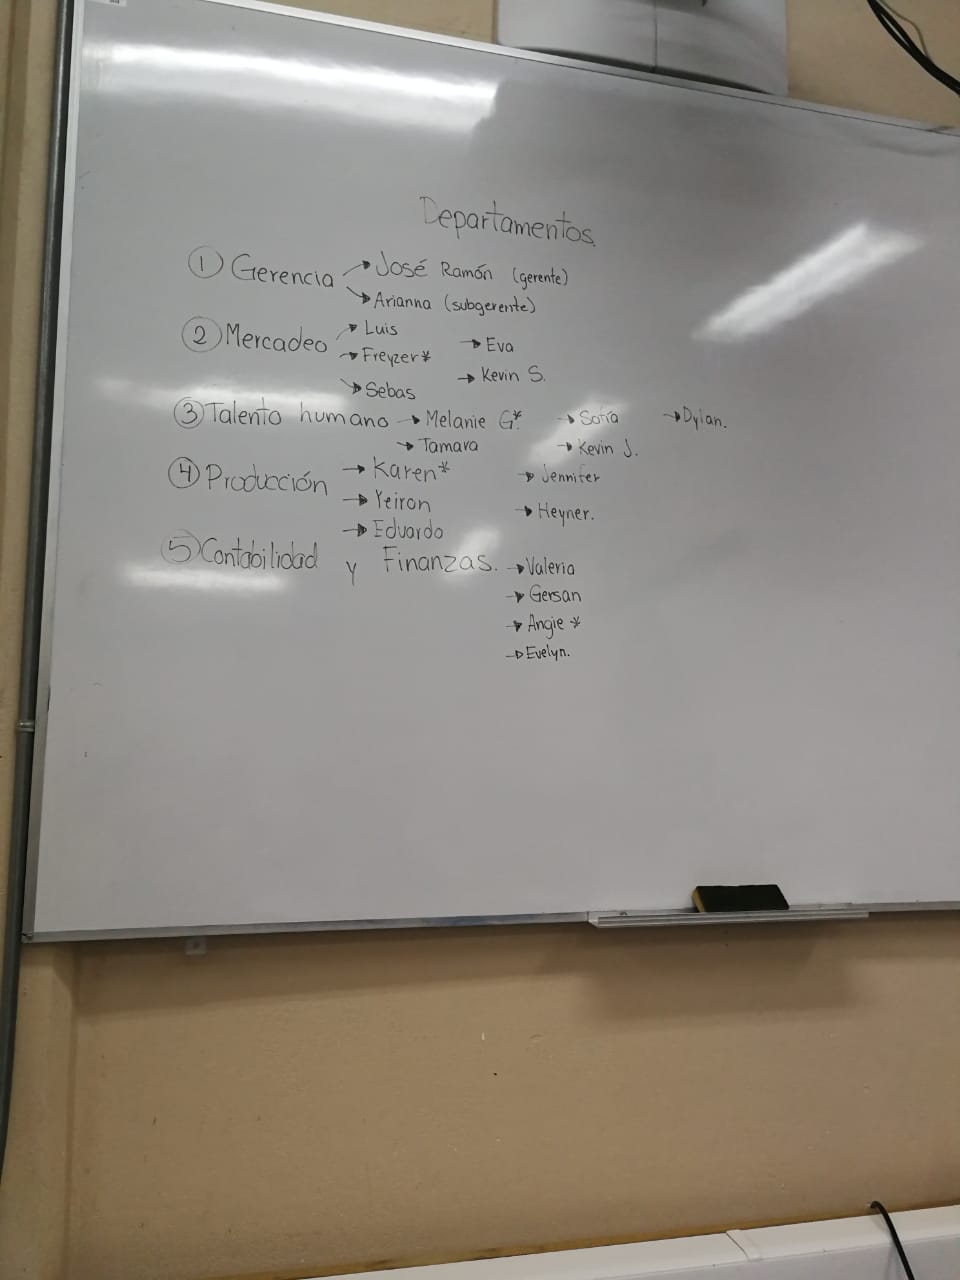 Departamentos.
① Gerencia → José Ramón (gerente)
→ Arianna (subgerente)
② Mercadeo → Luis
→ Freyzer* → Eva
→ Sebas → Kevin S.
③ Talento humano → Melanie G.* → Sofía → Dylan.
→ Tamara → Kevin J.
④ Producción → Karen* → Jennifer
→ Yeiron → Heyner.
→ Eduardo
⑤ Contabilidad y Finanzas. → Valeria
→ Gersan
→ Angie *
→ Evelyn.